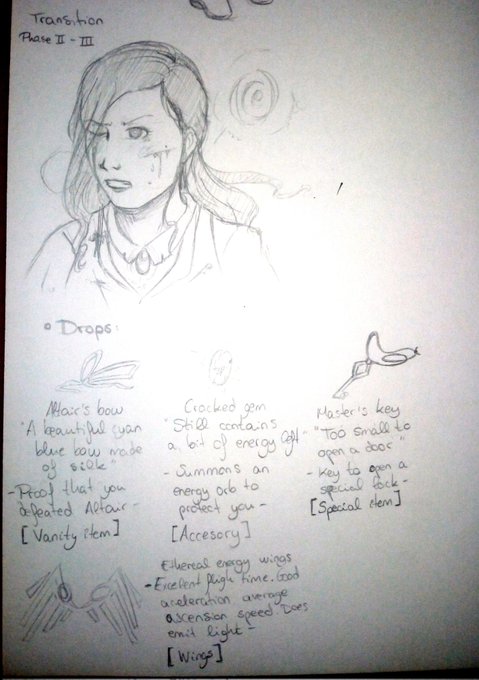 Transition
Phase II - III
• Drops:
Altair's bow
"A beautiful cyan
blue bow made
of silk"
- Proof that you
defeated Altair -
[Vanity item]
Cracked gem
"Still contains
a bit of energy left"
- Summons an
energy orb to
protect you -
[Accesory]
Master's key
"Too small to
open a door"
- Key to open a
special lock -
[Special item]
Ethereal energy wings
- Excellent fligh time. Good
aceleration average
ascension speed. Does
emit light -
[Wings]